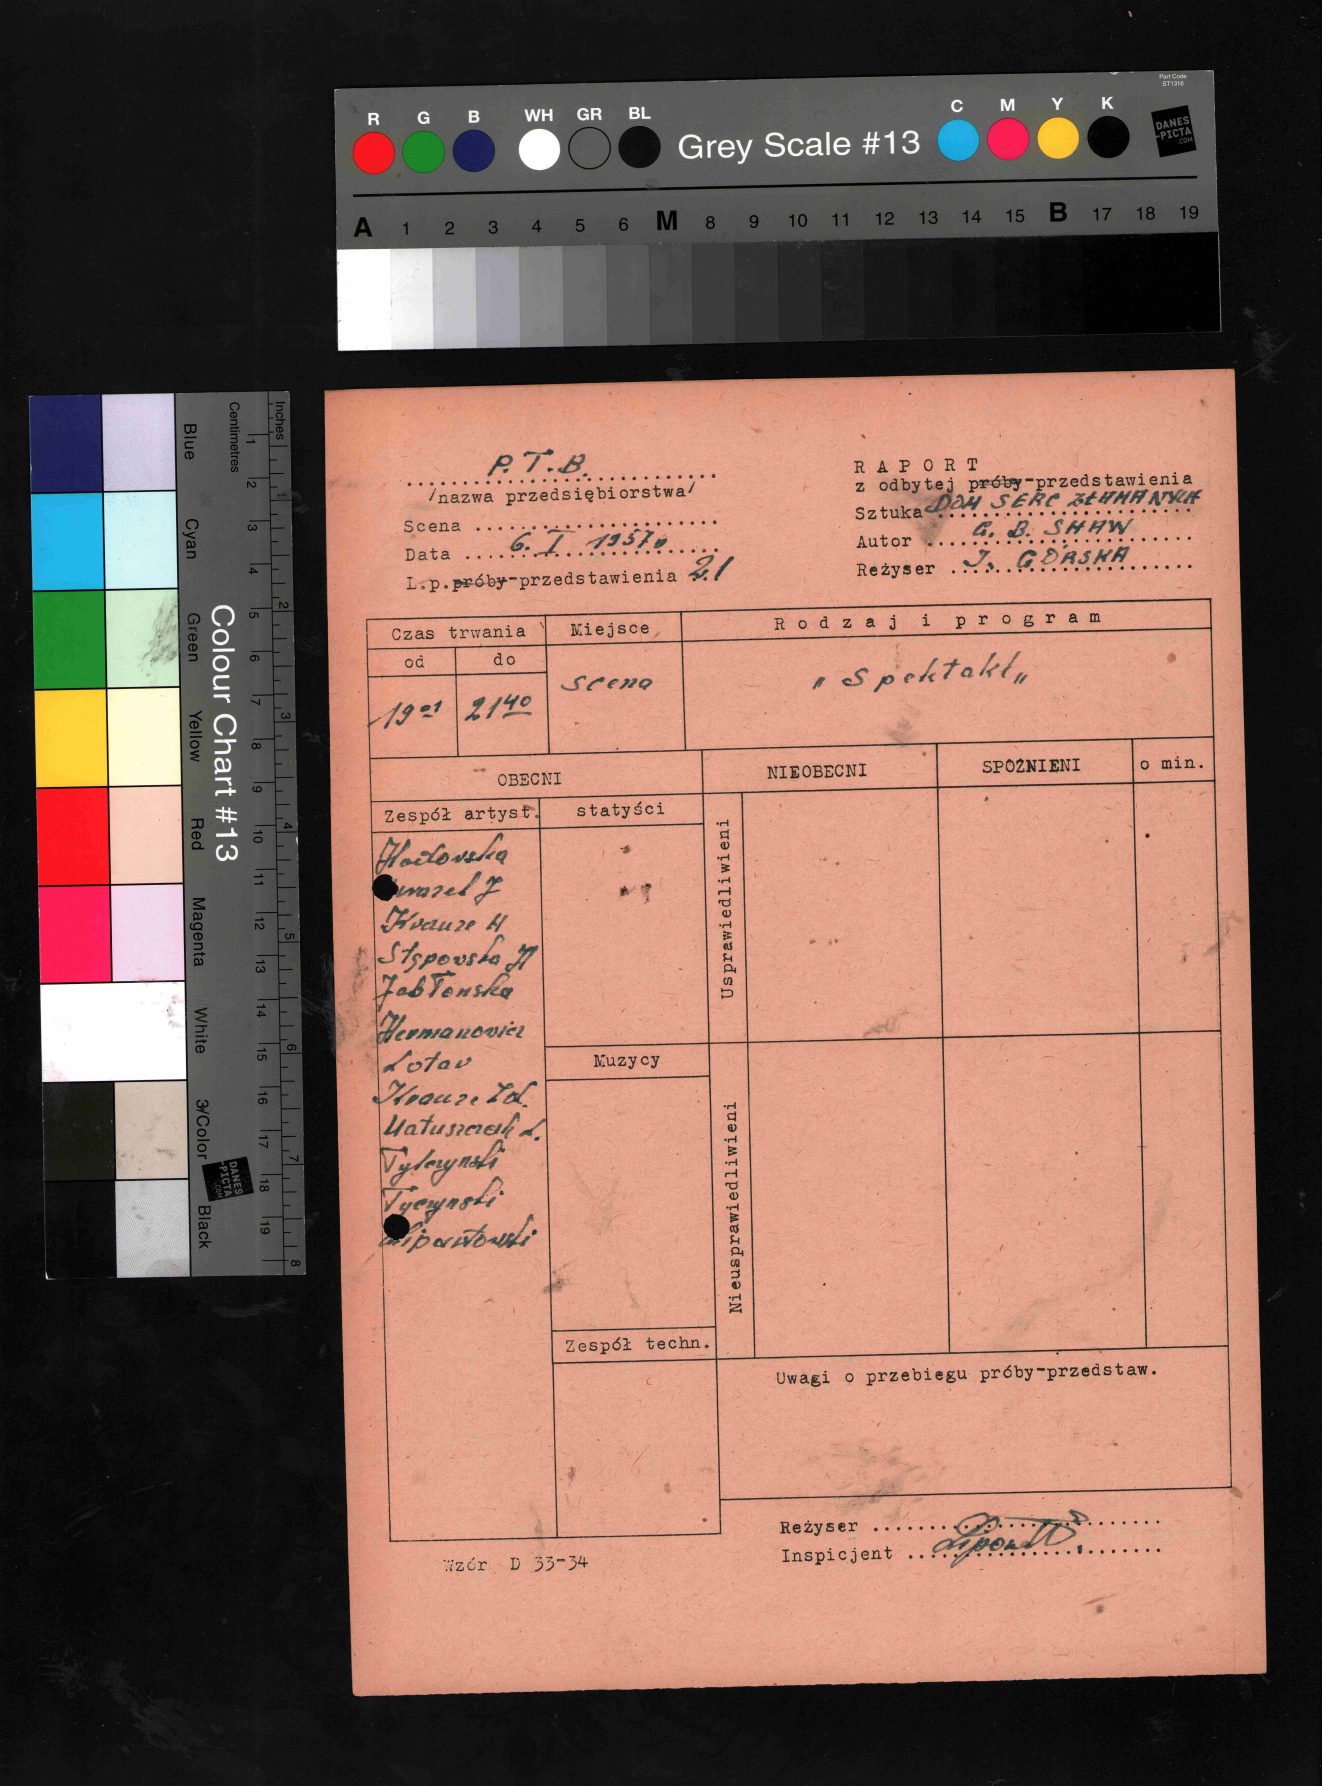 Part Code
ST1316
R G B WH GR BL Grey Scale #13 C M Y K
DANES
-PICTA
.COM
A 1 2 3 4 5 6 M 8 9 10 11 12 13 14 15 B 17 18 19
Colour Chart #13
Blue Cyan Green Yellow Red Magenta White 3/Color Black
Centimetres
1 2 3 4 5 6 7 8 9 10 11 12 13 14 15 16 17 18 19
Inches
1 2 3 4 5 6 7 8
DANES
-PICTA
.COM
P.T.B.
/nazwa przedsiębiorstwa/
Scena
Data 6. I 1957 r
L.p. próby-przedstawienia 21
RAPORT
z odbytej próby-przedstawienia
Sztuka DOM SERC ZŁAMANYCH
Autor G. B. SHAW
Reżyser I. GÓRSKA
Czas trwania Miejsce Rodzaj i program
od do
19 01 21 40 scena „Spektakl„
OBECNI NIEOBECNI SPÓŹNIENI o min.
Zespół artyst. statyści
Usprawiedliwieni
Krauze H
Stępowska H
Jabłońska
Hermanowicz
Lotar
Krauze Zd.
Matuszczak L.
Tylczyński
Tyczyński
Muzycy
Nieusprawiedliwieni
Zespół techn.
Uwagi o przebiegu próby-przedstaw.
Reżyser
Inspicjent
Wzór D 33-34